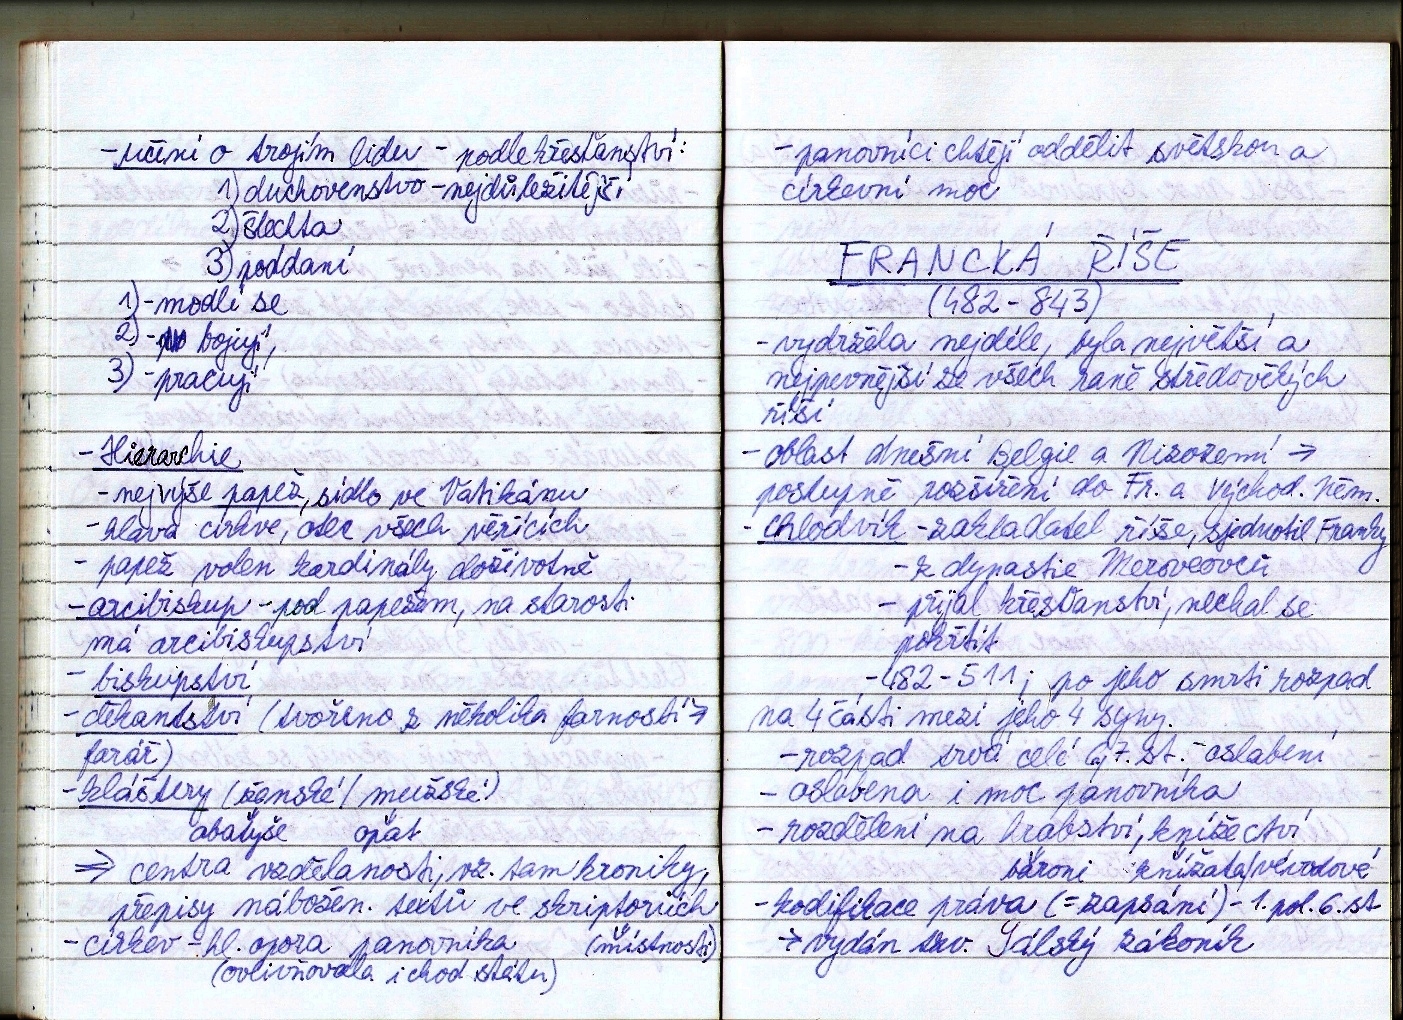 - učení o trojím lidu - podle křesťanství:
1) duchovenstvo - nejdůležitější
2) šlechta
3) poddaní
1) - modlí se
2) - bojují
3) - pracují
- Hierarchie
- nejvýše papež, sídlo ve Vatikánu
- hlava církve, otec všech věřících
- papež volen kardinály doživotně
- arcibiskup - pod papežem, na starosti
má arcibiskupství
- biskupství
- děkanství (tvořeno z několika farností →
farář)
- kláštery (ženské / mužské)
abatyše opat
⇒ centra vzdělanosti, vz. tam kroniky,
přepisy nábožen. textů ve skriptoriích
- církev - hl. opora panovníka (místnosti)
(ovlivňovala i chod státu)
- panovníci chtějí oddělit světskou a
církevní moc
FRANCKÁ ŘÍŠE
(482 - 843)
- vydržela nejdéle, byla největší a
nejpevnější ze všech raně středověkých
říší
- oblast dnešní Belgie a Nizozemí →
postupné rozšíření do Fr. a východ. Něm.
- Chlodvík - zakladatel říše, sjednotil Franky
- z dynastie Meroveovců
- přijal křesťanství, nechal se
pokřtít
- 482 - 511; po jeho smrti rozpad
na 4 části mezi jeho 4 syny.
- rozpad trvá celé 6,7. st. - oslabení
- oslabena i moc panovníka
- rozdělení na hrabství, knížectví
baroni knížata/vévodové
- kodifikace práva (= zapsání) - 1. pol. 6. st
→ vydán tzv. Sálský zákoník